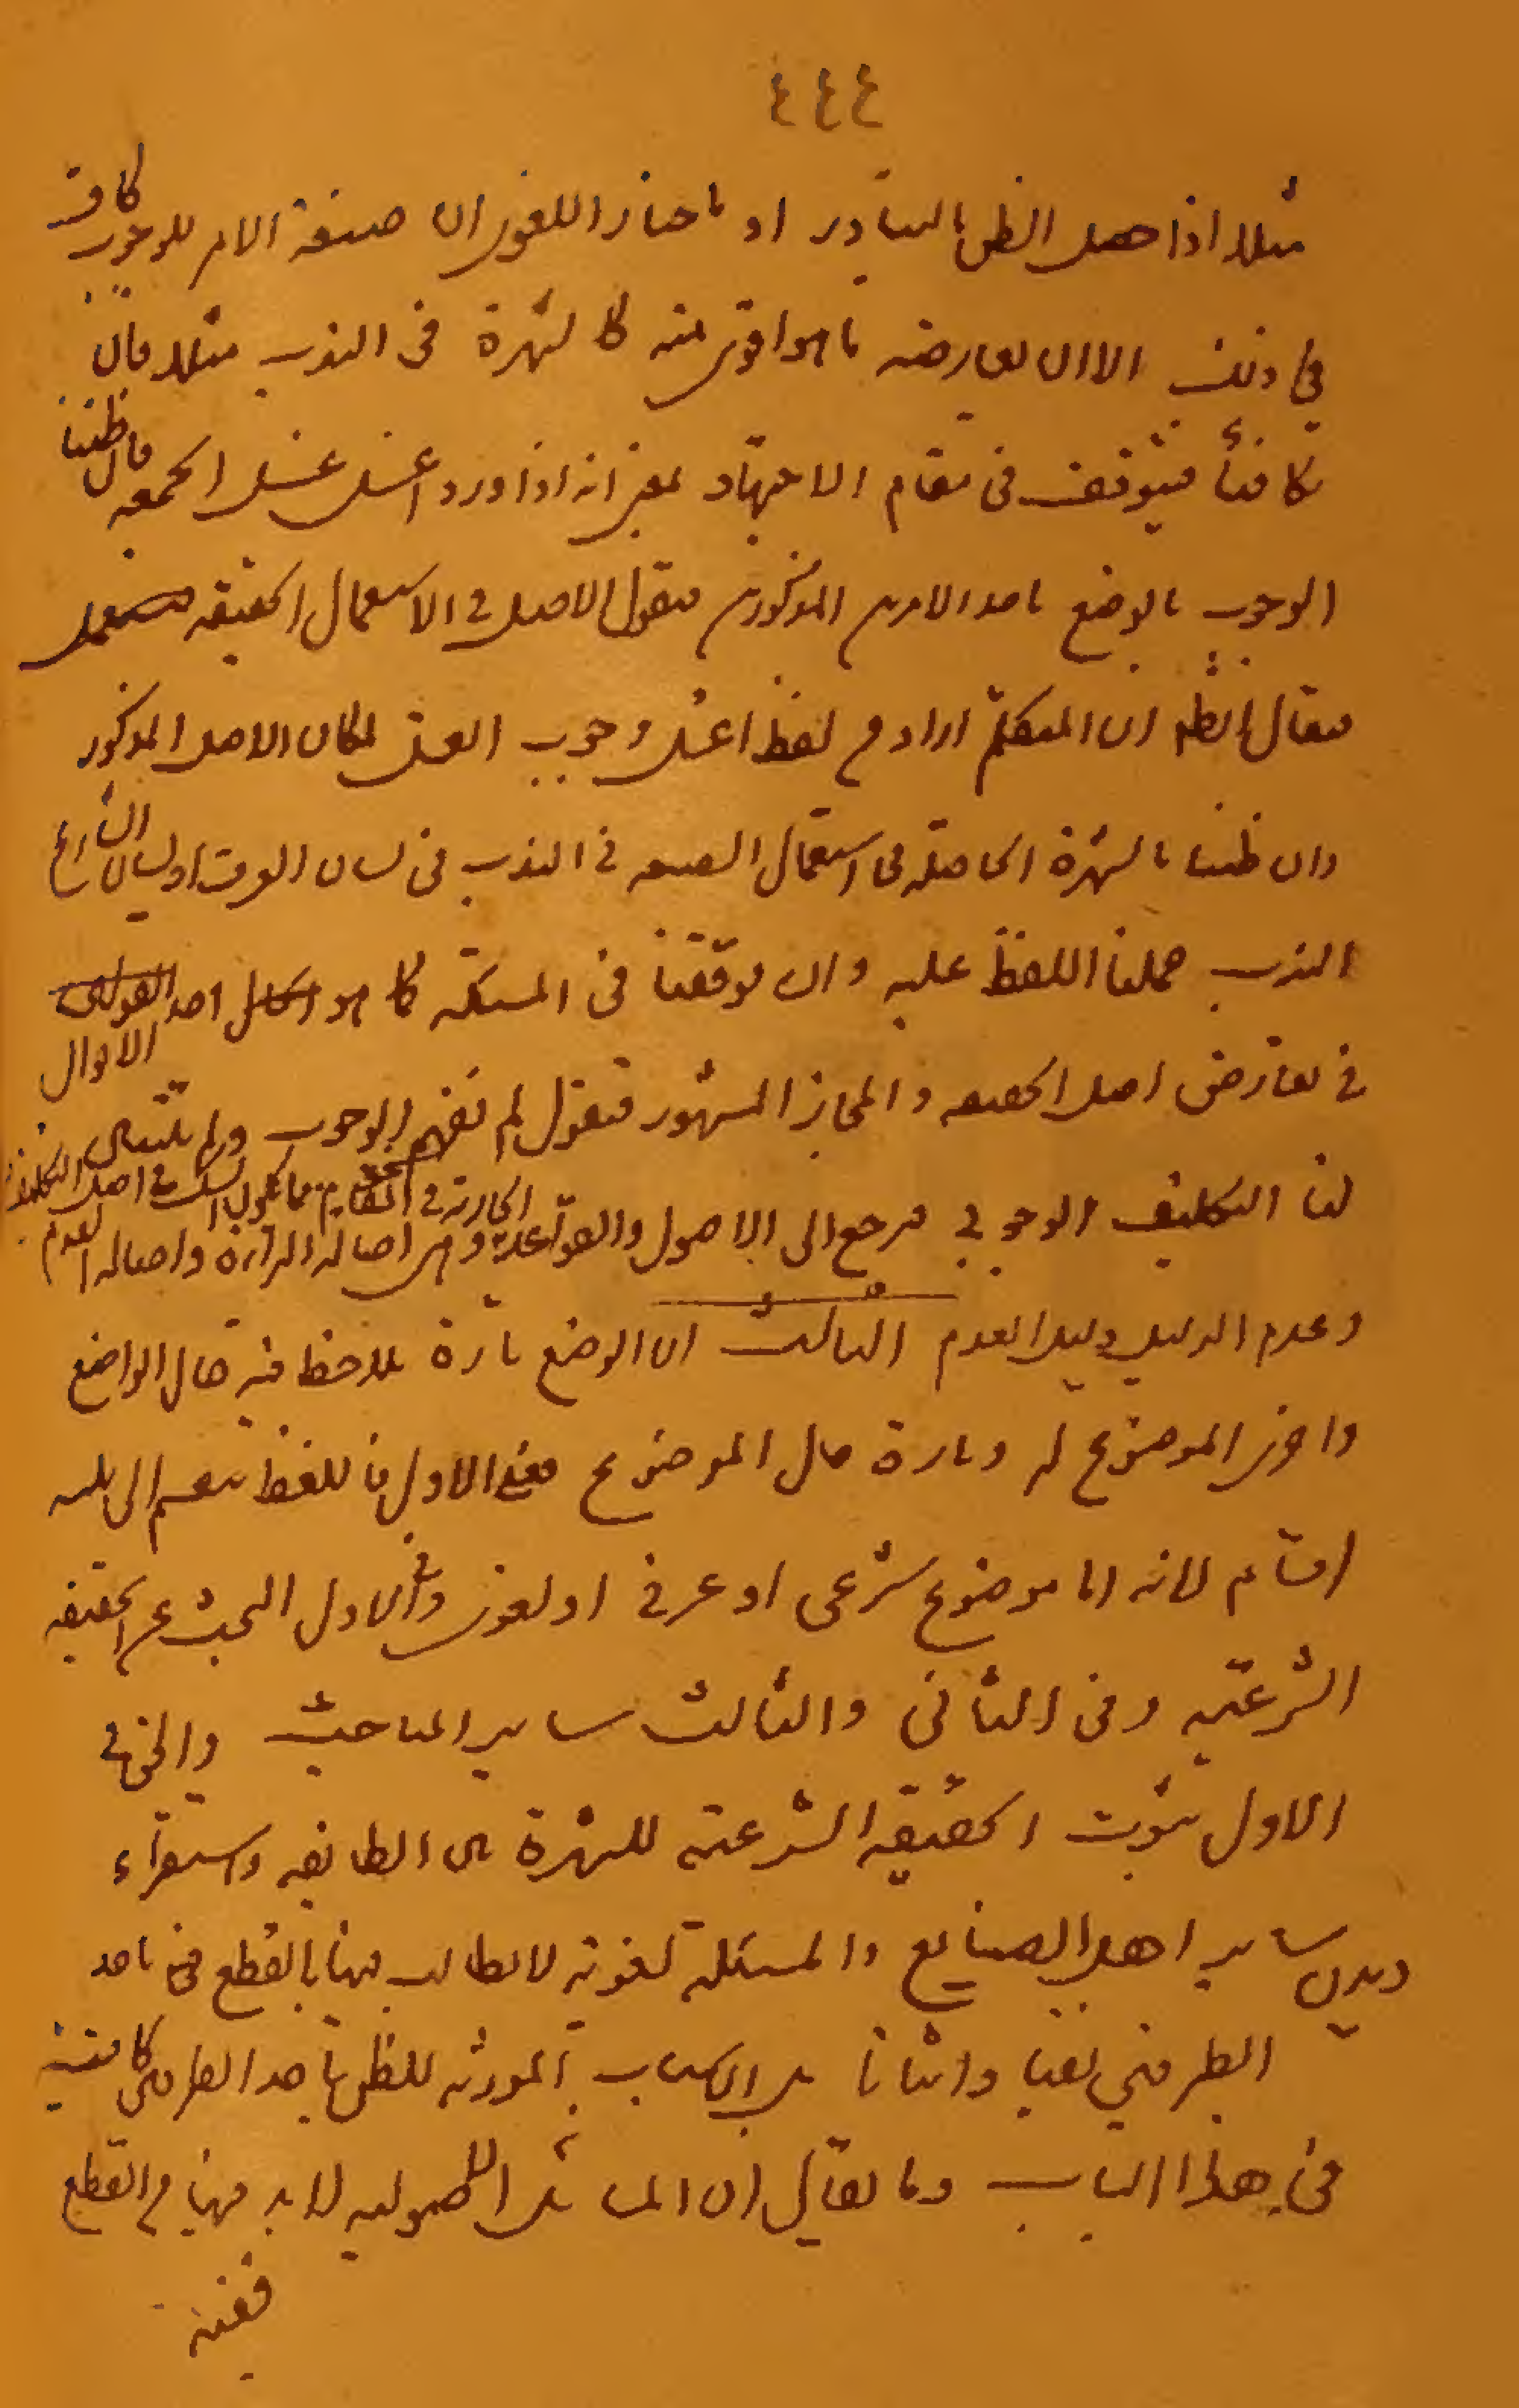 ٤٤٤
مثلا اذا حصل الظن بالتبادر او باخبار اللغوى ان صيغة الامر للوجوب كاف
فى ذلك الا ان يعارضه ما هو اقوى منه كالشهرة فى الندب مثلا فان
تكافئا فيتوقف فى مقام الاجتهاد بمعنى انه اذا ورد اغسل غسل الجمعه فان ظننا
الوجوب بالوضع باحد الامرين المذكورين فنقول الاصل فى الاستعمال الحقيقه
فيقال الظاهر ان المتكلم اراد من لفظ اغسل وجوب الغسل لمكان الاصل المذكور
وان ظننا بالشهرة الحاصله فى استعمال الصيغه فى الندب فى لسان العرف او لسان الشارع
الندب حملنا اللفظ عليه وان توقفنا فى المسئلة كما هو احد الاقوال
فى تعارض اصل الحقيقه والمجاز المشهور فنقول لم نفهم الوجوب ولم يثبت
لنا التكليف الوجوبى فنرجع الى الاصول والقواعد الجارية فى المقام مما يكون الشك فى اصل التكليف وهى اصالة البرائة واصالة العدم
وعدم الدليل دليل العدم الثالث ان الوضع تارة يلاحظ فيه حال الواضع
واخرى الموضوع له وتارة حال الموضوع فعلى الاول فاللفظ ينقسم الى ثلثه
اقسام لانه اما موضوع شرعى او عرفى او لغوى وفى الاول البحث عن الحقيقه
الشرعيه وفى الثانى والثالث ساير المباحث والحق فى
الاول ثبوت الحقيقه الشرعيه للشهرة بين الطايفه واستقراء
ديدن ساير اهل الصنايع والمسئلة لغوية لا يطالب فيها بالقطع فى احد
الطرفين نفيا واثباتا بل الاسباب المورثه للظن باحد الطرفين كافية
فى هذا الباب وما يقال ان المسائل الاصوليه لا بد فيها من القطع
ففيه